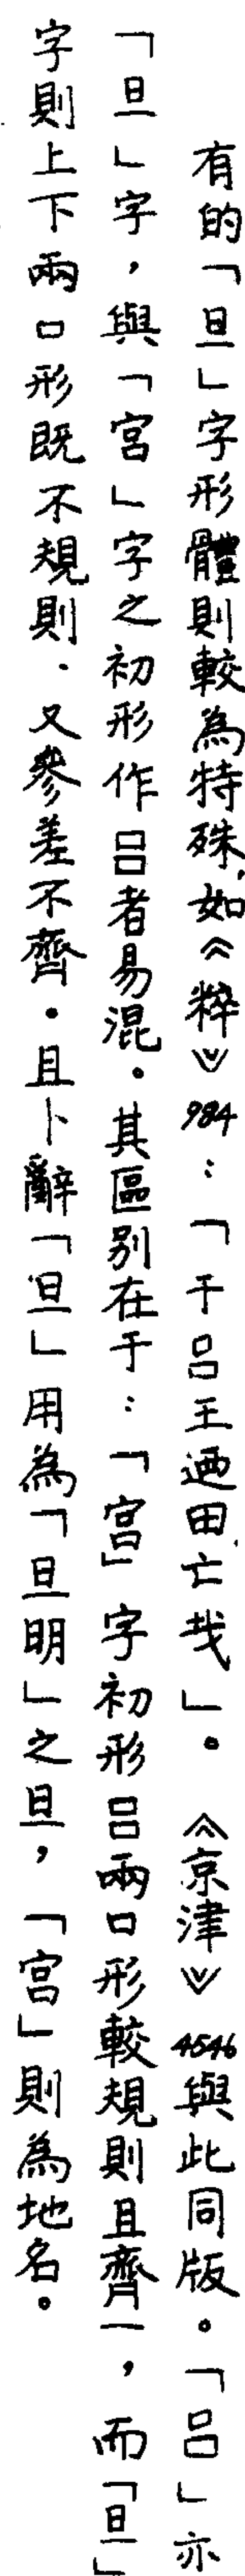 有的「旦」字形體則較為特殊，如《粹》984：「于吕王迺田，亡𢦏」。《京津》4546與此同版。「吕」亦
「旦」字，與「宫」字之初形作吕者易混。其區别在于：「宫」字初形吕兩口形較規則且齊一，而「旦」
字則上下兩口形既不規則，又參差不齊。且卜辭「旦」用為「旦明」之旦，「宫」則為地名。